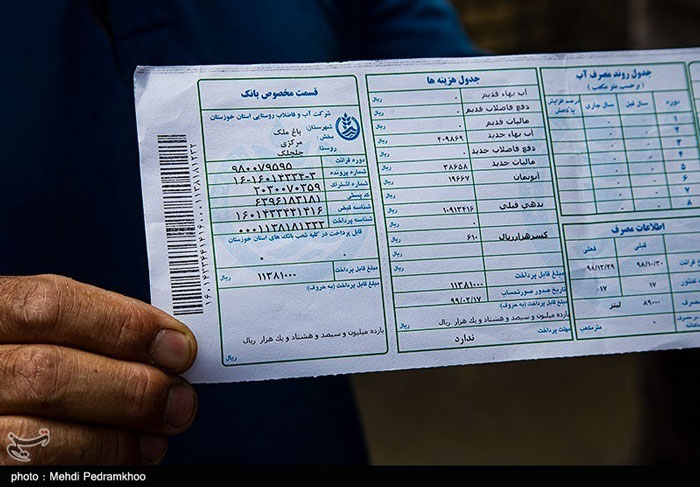 قسمت مخصوص بانک
شرکت آب و فاضلاب روستایی استان خوزستان
شهرستان: باغ ملک
بخش: مرکزی
روستا: جلجلک
دوره قرائت ۹۸۰۰۷۹۵۹۵
شماره پرونده ۱۶-۱۶۰۱۴۳۳۴-۳
شماره اشتراک ۲۰۲۰۰۷۰۲۵۹
کد پستی ۶۳۹۶۱۸۳۱۸۱
شناسه قبض ۱۶۰۱۴۳۳۴۳۱۴۱۶
شناسه پرداخت ۰۰۰۱۱۳۸۱۸۱۲۳۲
قابل پرداخت در کلیه شعب بانک های استان خوزستان
مبلغ قابل پرداخت ۱۱۳۸۱۰۰۰ ریال
مبلغ قابل پرداخت (به حروف)
یازده میلیون و سیصد و هشتاد و یک هزار ریال
ریال
جدول هزینه ها
آب بهاء قدیم ۰ ریال
دفع فاضلاب قدیم ۰ ریال
مالیات قدیم ۰ ریال
آب بهاء جدید ۴۰۹۸۶۹ ریال
دفع فاضلاب جدید ۰ ریال
مالیات جدید ۳۸۶۵۸ ریال
آبونمان ۱۹۶۶۷ ریال
بدهی قبلی ۱۰۹۱۳۴۱۶ ریال
کسرهزارریال ۶۱۰ ریال
مبلغ قابل پرداخت ۱۱۳۸۱۰۰۰ ریال
تاریخ صدور صورتحساب ۹۹/۰۲/۱۷
مبلغ قابل پرداخت (به حروف)
یازده میلیون و سیصد و هشتاد و یک هزار ریال
مهلت پرداخت ندارد
جدول روند مصرف آب
(برحسب متر مکعب)
دوره سال قبل سال جاری درصد افزایش یا کاهش
۱
۲
۳
۴
۵
۶
۷
۸
اطلاعات مصرف
قبلی فعلی
قرائت ۹۸/۱۰/۳۰ ۹۸/۱۲/۲۹
۱۷ ۱۷
۸۹۰۰۰ لیتر
۰ مترمکعب
تسنیم
photo : Mehdi Pedramkhoo